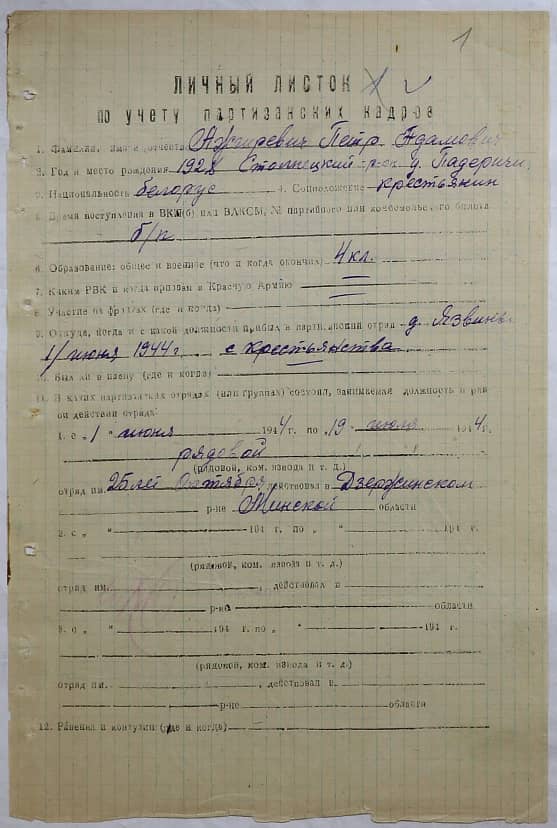 1
ЛИЧНЫЙ ЛИСТОК
по учету партизанских кадров
1. Фамилия, имя и отчество Ажгиревич Петр Адамович
2. Год и место рождения 1928 Столпецкий р-он д. Падеричи
3. Национальность белорус 4. Соцположение крестьянин
5. Время поступления в ВКП(б) или ВЛКСМ, № партийного или комсомольского билета
б/п
6. Образование: общее и военное (что и когда окончил) 4 кл.
7. Каким РВК и когда призван в Красную Армию
8. Участие на фронтах (где и когда)
9. Откуда, когда и с какой должности прибыл в партизанский отряд д. Язвины
1/июня 1944 г с крестьянства
10. Был ли в плену (где и когда)
11. В каких партизанских отрядах (или группах) состоял, занимаемая должность и рай
он действия отряда:
1. с „1" июня 1944 г. по „19" июля 1944 г.
рядовой
(рядовой, ком. взвода и т. д.)
отряд им. 25 лет Октября действовал в Дзержинском
р-не Минской области
2. с „ " 194 г. по „ " 194 г.
(рядовой, ком. взвода и т. д.)
отряд им. , действовал в
р-не области
3. с „ " 194 г. по „ " 194 г.
(рядовой, ком. взвода и т. д.)
отряд им. , действовал в
р-не области
12. Ранения и контузии (где и когда)